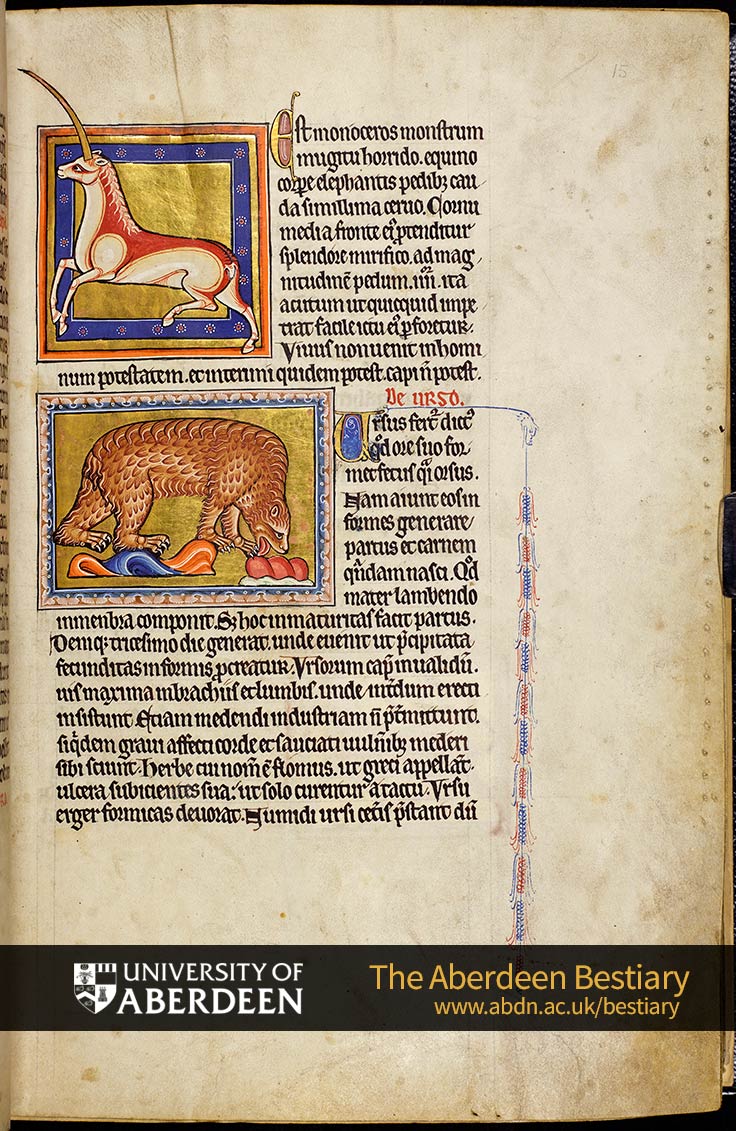 15
Est monoceros monstrum
mugitu horrido. equino
corpe elephantis pedibz cau
da simillima ceruo. Cornu
media fronte ei9 ptenditur
splendore mirifico. ad mag
nitudinē pedum. iiii. ita
acutum ut quicquid impe
trat facile ictu ei9 pforetur.
Viuus non uenit in homi
num potestatem. et interimi quidem potest. capi ñ potest.
De urso.
Ursus fert dict9
qd ore suo for
met fetus qi orsus.
Nam aiunt eos in
formes generare
partus et carnem
qñdam nasci. Qd
mater lambendo
in menbra componit. Sz hoc inmaturitas facit partus.
Deniqz tricesimo die generat. unde euenit ut pcipitata
fecunditas informis pcreatur. Ursorum cap inualidū.
uis maxima in brachiis et lumbis. unde intdum erecti
insistunt. Etiam medendi industriam ñ ptmittunt.
siqdem graui affecti corde et sauciati uulnibz mederi
sibi sciunt. Herbe cui nom ē flomus. ut greci appellāt.
ulcera subicientes sua. ut solo curentur a tactu. Ursu
erger formicas deuorat. Numidi ursi cetis pstant dū
UNIVERSITY OF
ABERDEEN
The Aberdeen Bestiary
www.abdn.ac.uk/bestiary